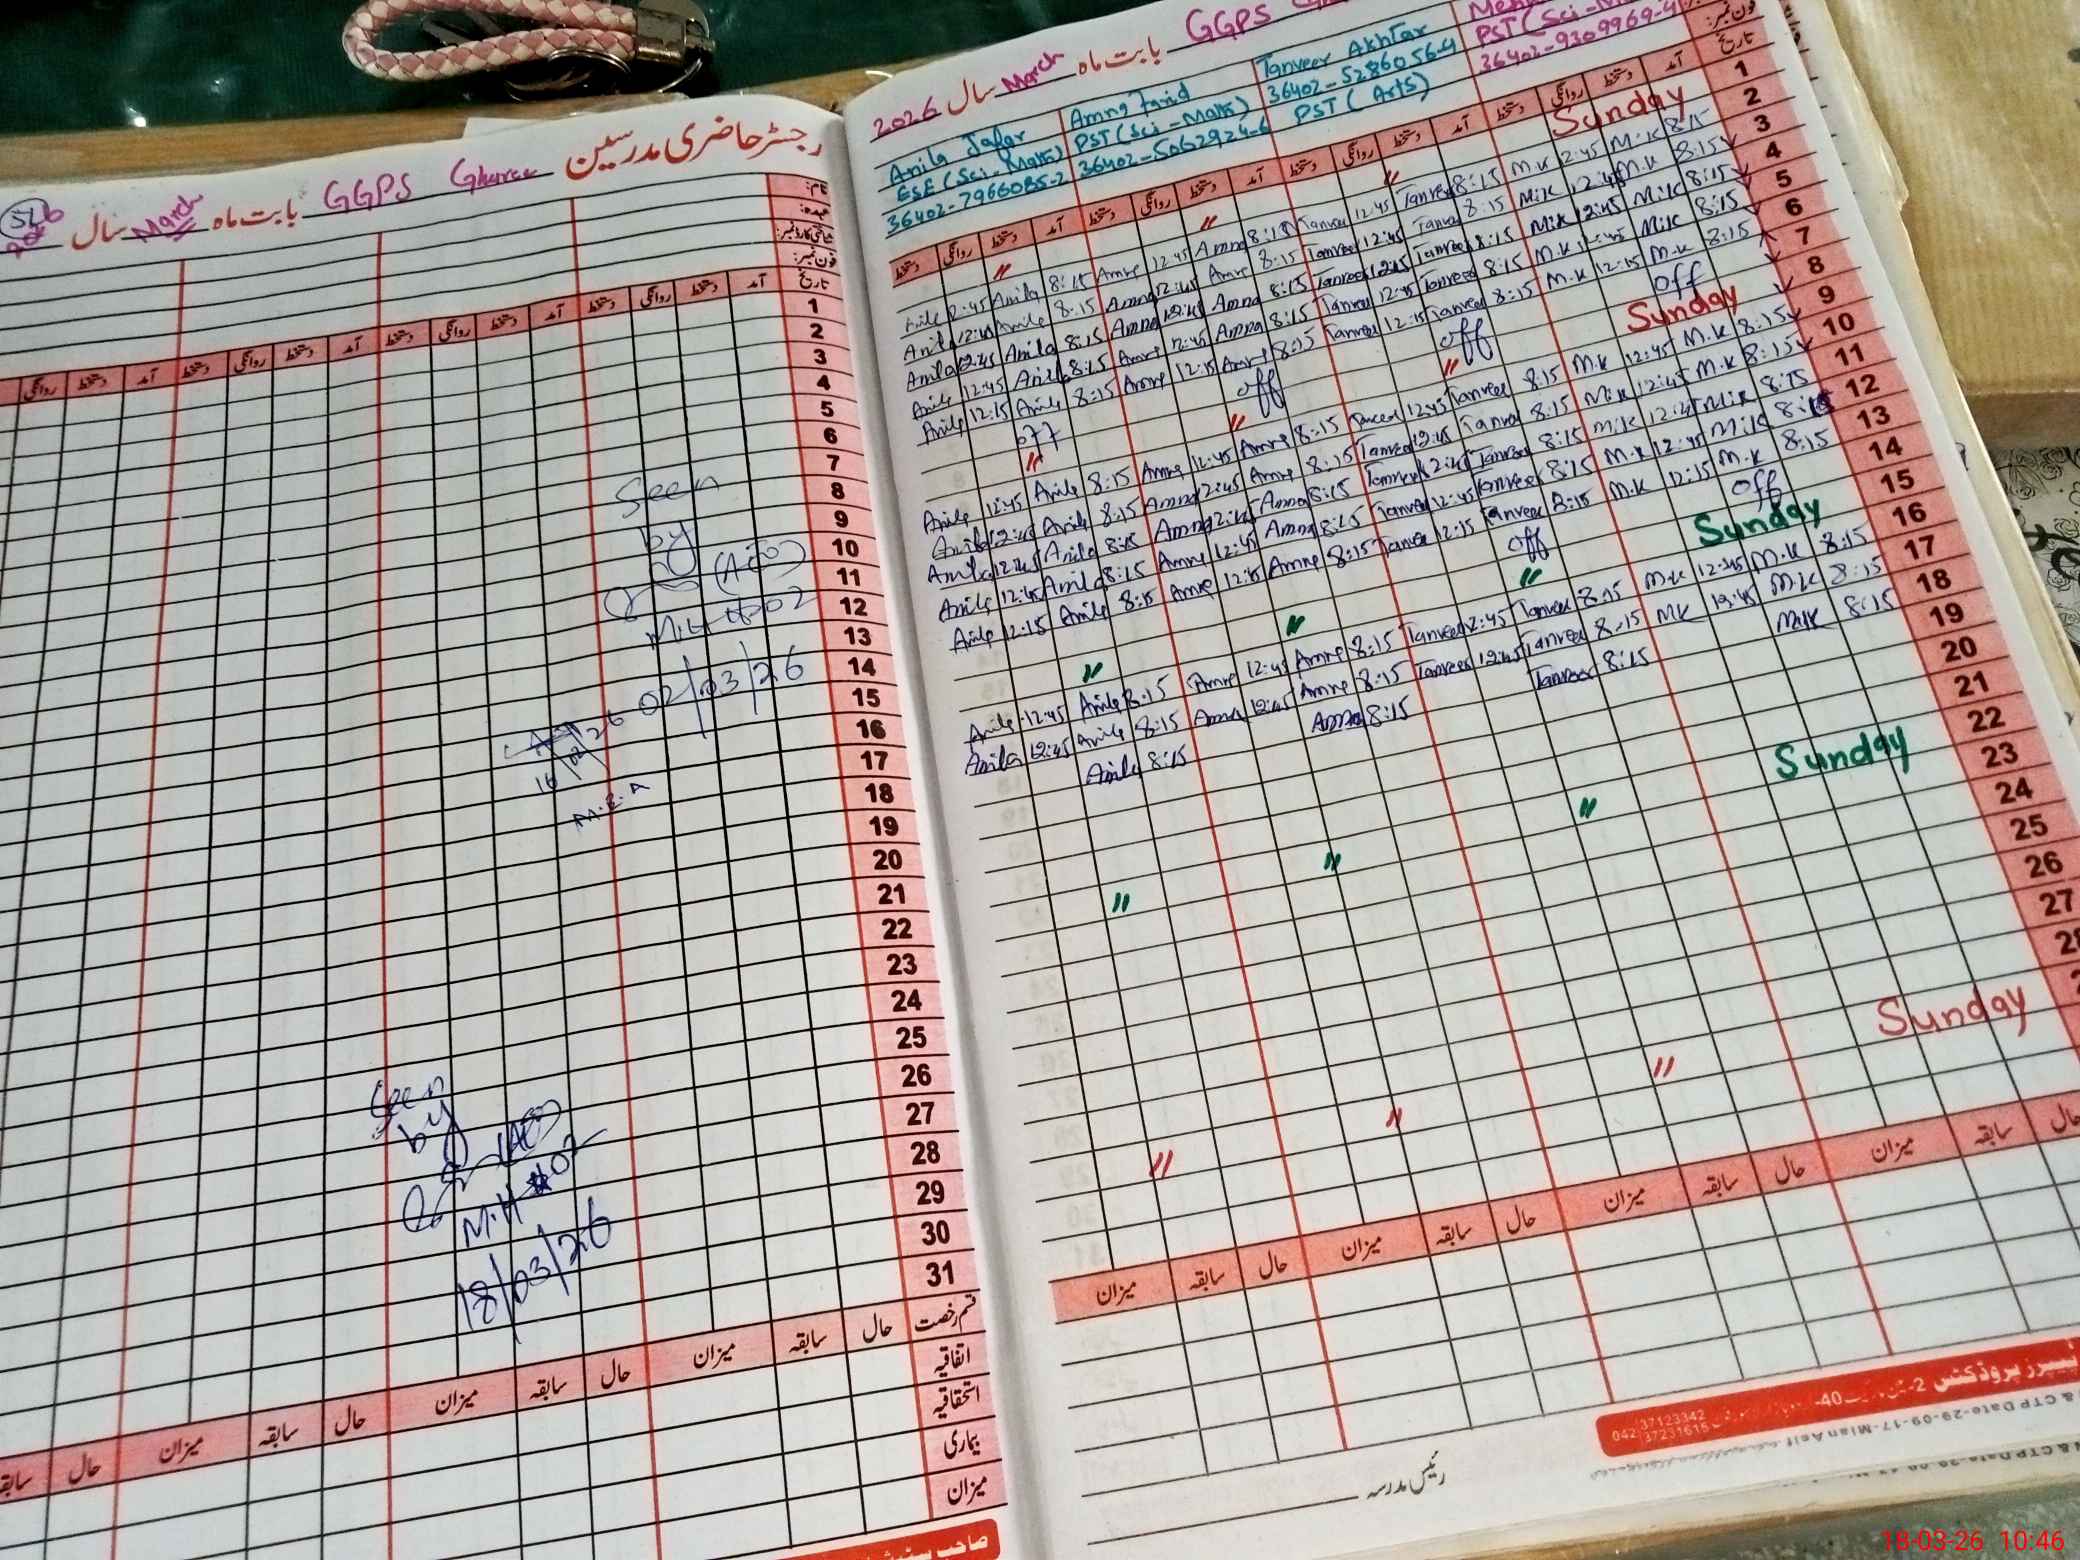 رجسٹر حاضری مدرسین
سال March بابت ماہ GGPS
نام:
عہدہ:
شناختی کارڈ نمبر:
فون نمبر:
تاریخ
آمد دستخط روانگی دستخط آمد دستخط روانگی دستخط آمد دستخط روانگی
1
2
3
4
5
6
7
8
9
10
11
12
13
14
15
16
17
18
19
20
21
22
23
24
25
26
27
28
29
30
31
Seen
by
(AEO)
M.H #02
02/03/26
M.E.A
Seen
by
(AEO)
M.H #02
18/03/26
قسم رخصت حال سابقہ میزان حال سابقہ میزان حال سابقہ میزان حال
اتفاقیہ
استحقاقیہ
بیماری
میزان
2026 سال March بابت ماہ GGPS
Anila Jafar
ESE (Sci-Math)
36402-7966085-2
Amna Farid
PST (Sci-Math)
36402-5062924-6
Tanveer Akhtar
36402-5286056-4
PST (Arts)
فون نمبر:
تاریخ
آمد دستخط روانگی دستخط آمد دستخط روانگی دستخط آمد دستخط روانگی دستخط
1 Sunday // // //
2 8:15 M.K 12:45 M.K 8:15 Tanveer 12:45 Tanveer 8:15 Amna 12:45 Amna 8:15 Anila 12:45 Anila
3 8:15 M.K 12:45 M.K 8:15 Tanveer 12:45 Tanveer 8:15 Amna 12:45 Amna 8:15 Anila 12:45 Anila
4 8:15 M.K 12:45 M.K 8:15 Tanveer 12:45 Tanveer 8:15 Amna 12:45 Amna 8:15 Anila 12:45 Anila
5 8:15 M.K 12:45 M.K 8:15 Tanveer 12:45 Tanveer 8:15 Amna 12:45 Amna 8:15 Anila 12:45 Anila
6 8:15 M.K 12:15 M.K 8:15 Tanveer 12:15 Tanveer 8:15 Amna 12:15 Amna 8:15 Anila 12:15 Anila
7 off off off off
8 Sunday // // //
9 8:15 M.K 12:45 M.K 8:15 Tanveer 12:45 Tanveer 8:15 Amna 12:45 Amna 8:15 Anila 12:45 Anila
10 8:15 M.K 12:45 M.K 8:15 Tanveer 12:45 Tanveer 8:15 Amna 12:45 Amna 8:15 Anila 12:45 Anila
11 8:15 M.K 12:45 M.K 8:15 Tanveer 12:45 Tanveer 8:15 Amna 12:45 Amna 8:15 Anila 12:45 Anila
12 8:15 M.K 12:45 M.K 8:15 Tanveer 12:45 Tanveer 8:15 Amna 12:45 Amna 8:15 Anila 12:45 Anila
13 8:15 M.K 12:15 M.K 8:15 Tanveer 12:15 Tanveer 8:15 Amna 12:15 Amna 8:15 Anila 12:15 Anila
14 off off
15 Sunday // // //
16 8:15 M.K 12:45 M.K 8:15 Tanveer 12:45 Tanveer 8:15 Amna 12:45 Amna 8:15 Anila 12:45 Anila
17 8:15 M.K 12:45 MK 8:15 Tanveer 12:45 Tanveer 8:15 Amna 12:45 Amna 8:15 Anila 12:45 Anila
18 8:15 M.K 8:15 Tanveer 8:15 Amna 8:15 Anila
19
20
21
22 Sunday // // //
23
24
25
26
27
28
Sunday // // //
حال سابقہ میزان حال سابقہ میزان حال سابقہ میزان حال سابقہ میزان
رئیس مدرسہ
042 37123342
37231615
18-03-26 10:46